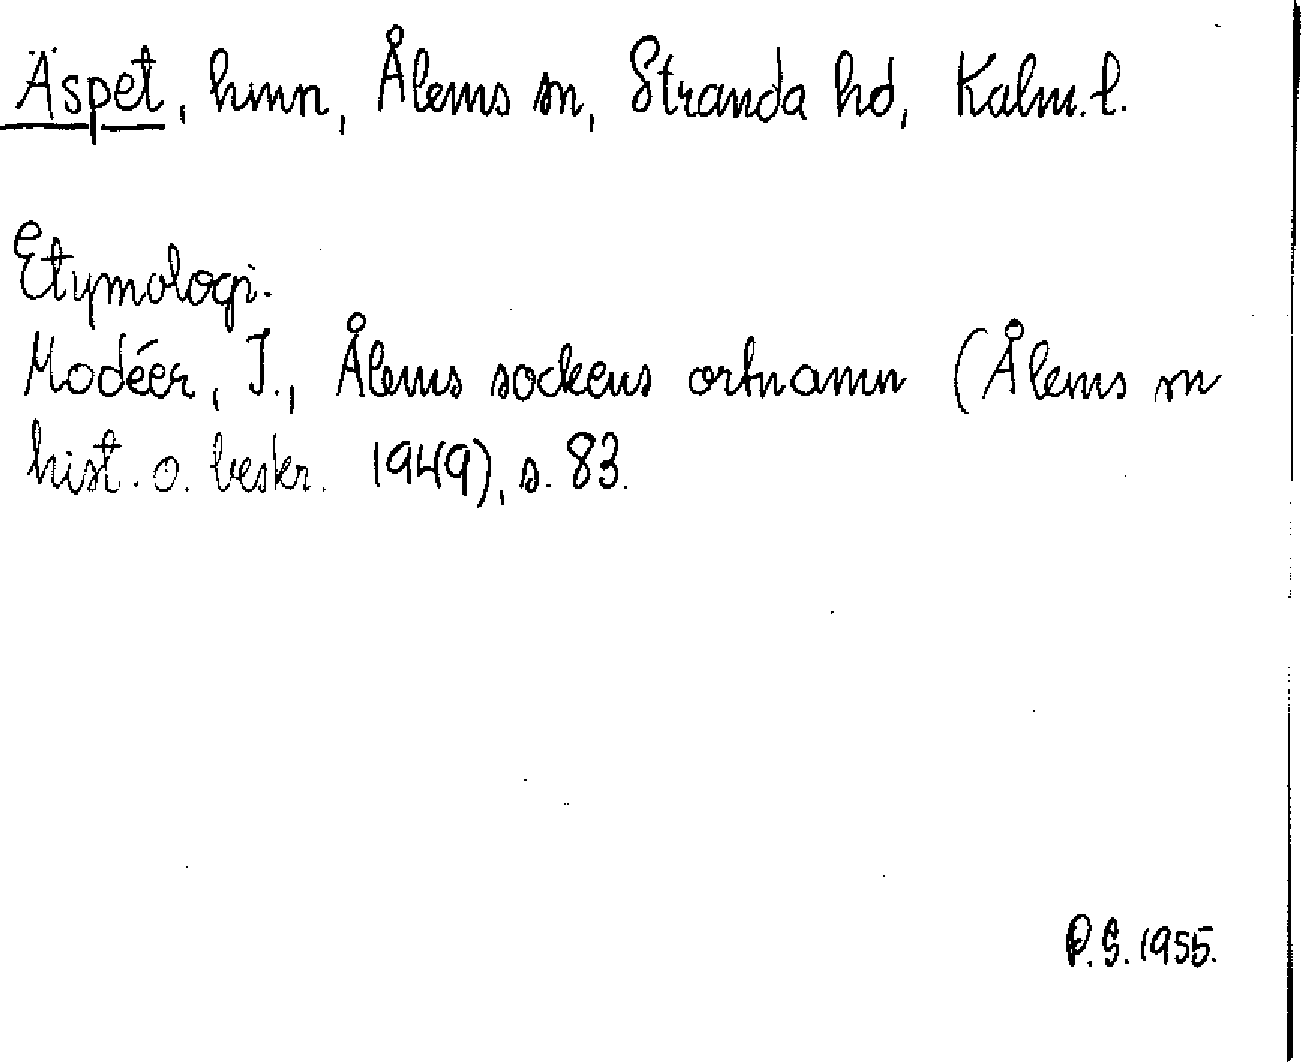 Äspet, hmn, Ålems sn, Stranda hd, Kalm. l.
Etymologi.
Modéer, I., Ålems sockens ortnamn (Ålems sn
hist. o. beskr. 1949), s. 83.
P.S. 1955.